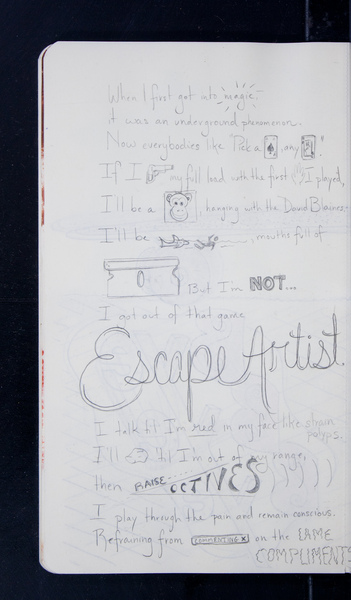 When I first got into magic,
it was an underground phenomenon.
Now everybodies like "Pick a , any ."
If I my full load with the first I played,
I'll be a , hanging with the David Blaines.
I'll be , mouths full of
But I'm NOT...
I got out of that game
Escape Artist.
I talk til I'm red in my face like strain
polyps.
I'll til I'm out of my range,
then RAISE OCTIVES
I play through the pain and remain conscious.
Refraining from COMMENTING X on the LAME
COMPLIMENTS